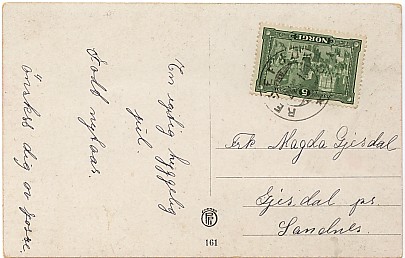 En rigtig hyggelig
jul.
Godt nytaar
önskes dig av
NORGE
5
Frk Magda Gjesdal
Gjesdal pr.
Sandnes.
161